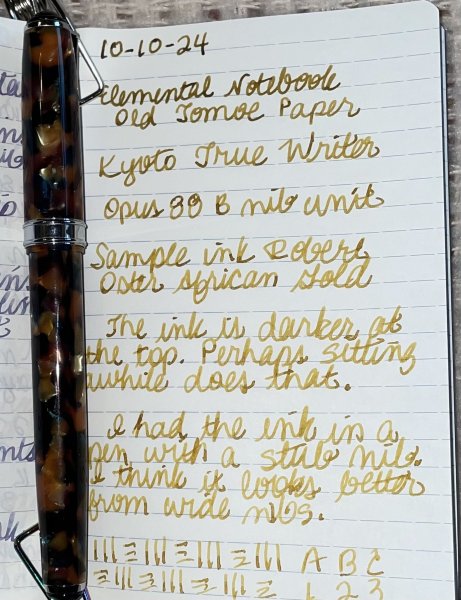 10-10-24
Elemental Notebook
Old Tomoe Paper
Kyoto True Writer
Opus 88 B nib unit
Sample ink Robert
Oster African Gold
The ink is darker at
the top. Perhaps sitting
awhile does that.
I had the ink in a
pen with a stub nib.
I think it looks better
from wide nibs.
A B C
1 2 3